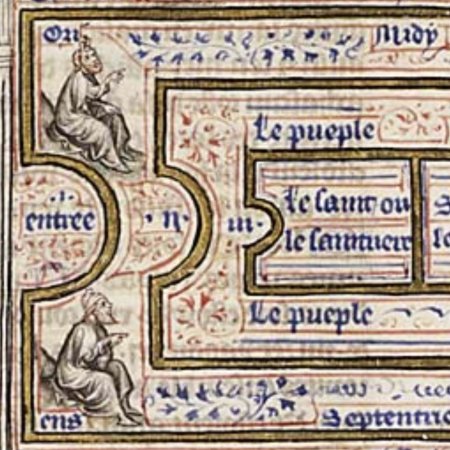 Ori
midy
Le pueple
le saint ou
le saintuere
.i.
entree
.ii.
iii.
Le pueple
ens
Septentrio